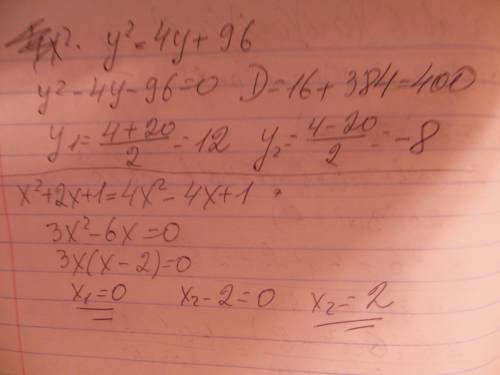 y² = 4y + 96
y² - 4y - 96 = 0 D = 16 + 384 = 400
y₁ = (4+20)/2 = 12 y₂ = (4-20)/2 = -8
x² + 2x + 1 = 4x² - 4x + 1
3x² - 6x = 0
3x(x - 2) = 0
x₁ = 0 x₂ - 2 = 0 x₂ = 2